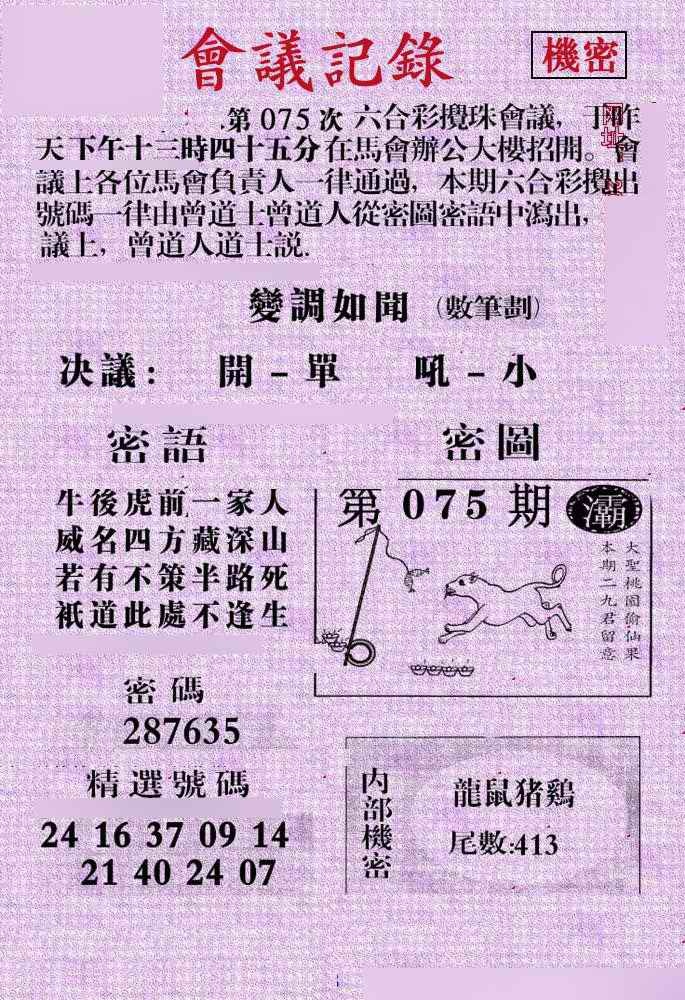 會議記錄
機密
第 075 次 六合彩攪珠會議，于昨
天下午十三時四十五分在馬會辦公大樓招開。會
議上各位馬會負責人一律通過，本期六合彩攪出
號碼一律由曾道士曾道人從密圖密語中瀉出，
議上，曾道人道士説.
變調如聞（數筆劃）
决議： 開－單 吼－小
密語
牛後虎前一家人
威名四方藏深山
若有不策半路死
衹道此處不逢生
密圖
第 075 期 灞
大聖桃園偷仙果
本期二九君留意
密碼
287635
精選號碼
24 16 37 09 14
21 40 24 07
内部機密
龍鼠猪鷄
尾數:413